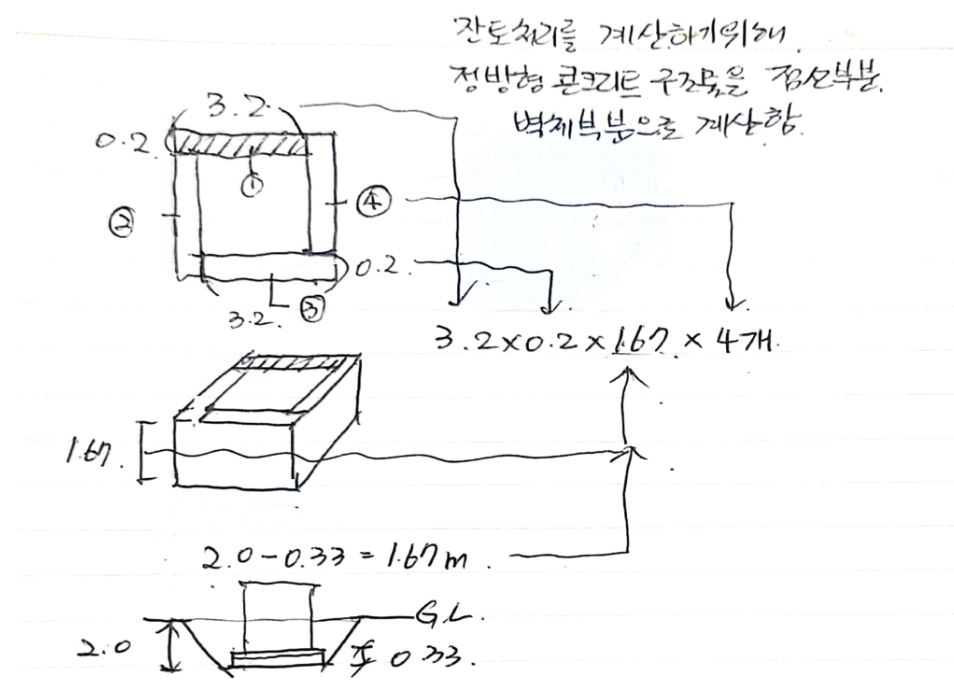 잔토처리를 계산하기위해
정방형 콘크리트 구조물을 점선부분.
벽체부분으로 계산함.
3.2
0.2
①
②
④
0.2.
3.2.
③
3.2×0.2×1.67 × 4개
1.67.
2.0-0.33=1.67m.
G.L.
2.0
0.33.